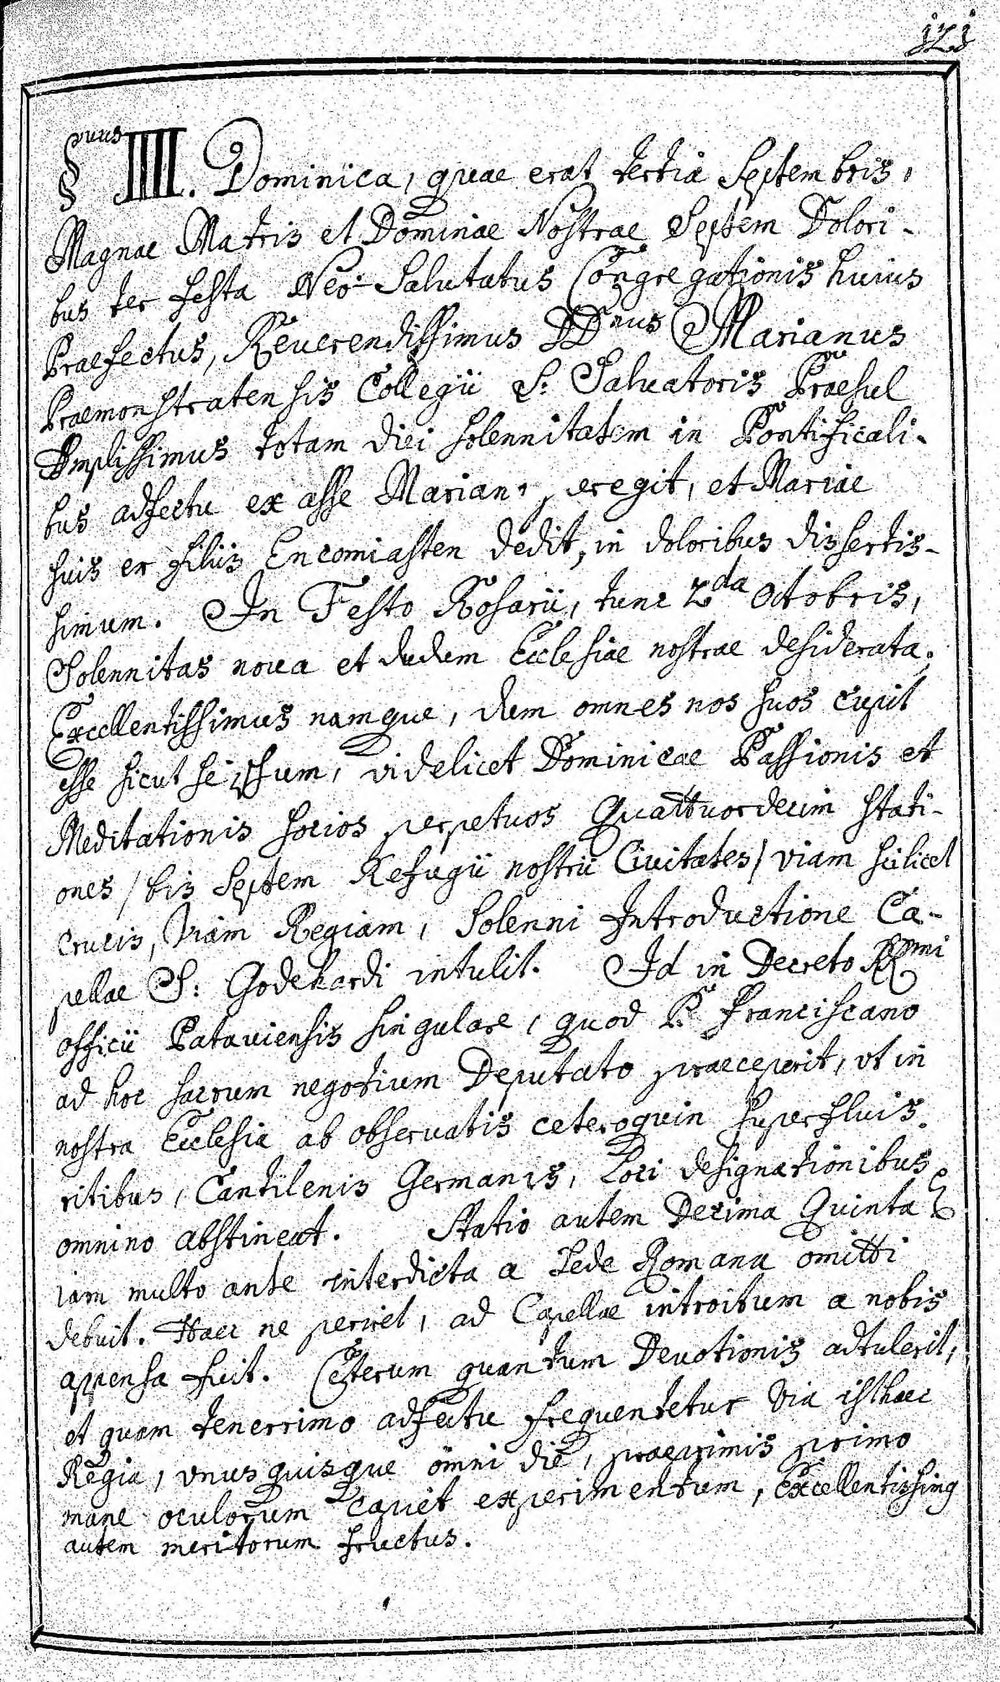 121
§nus IIII. Dominica, quae erat tertia Septembris,
Magnae Matris et Dominae Nostrae Septem Dolori-
bus ter festa Neo-Salutatus Congregationis huius
Praefectus, Reuerendissimus DDnus Marianus
Praemonstratensis Collegii S: Saluatoris Praesul
Amplissimus totam diei solennitatem in Pontificali-
bus adfectu ex asse Marian, peregit, et Mariae
suis er filiis Encomiasten dedit, in doloribus dissertis-
simum. In Festo Rosarii, tunc 2da Octobris,
Solennitas noua et dudum Ecclesiae nostrae desiderata.
Excellentissimus namque, dum omnes nos suos cupit
esse sicut se ipsum, videlicet Dominicae Passionis et
Meditationis socios perpetuos Quattuordecim stati-
ones / bis Septem Refugii nostri Ciuitates / viam scilicet
crucis, Viam Regiam, Solenni Introductione Ca-
pellae S: Godehardi intulit. Id in Decreto RRmi
officii Patauiensis singulare, quod P. Franciscano
ad hoc sacrum negotium Deputato praeceperit, vt in
nostra Ecclesia ab obseruatis ceteroquin superfluis
ritibus, Cantilenis Germanis, Loci designationibus &
omnino abstineat. Statio autem Decima Quinta
iam multo ante interdicta a Sede Romana omitti
debuit. Haec ne periret, ad Capellae introitum a nobis
appensa fuit. Ceterum quantum Deuotionis adtulerit,
et quam tenerrimo adfectu frequentetur Via isthaec
Regia, vnusquisque omni die, praeprimis primo
mane oculorum capiet experimentum, Excellentissimq
autem meritorum fructus.